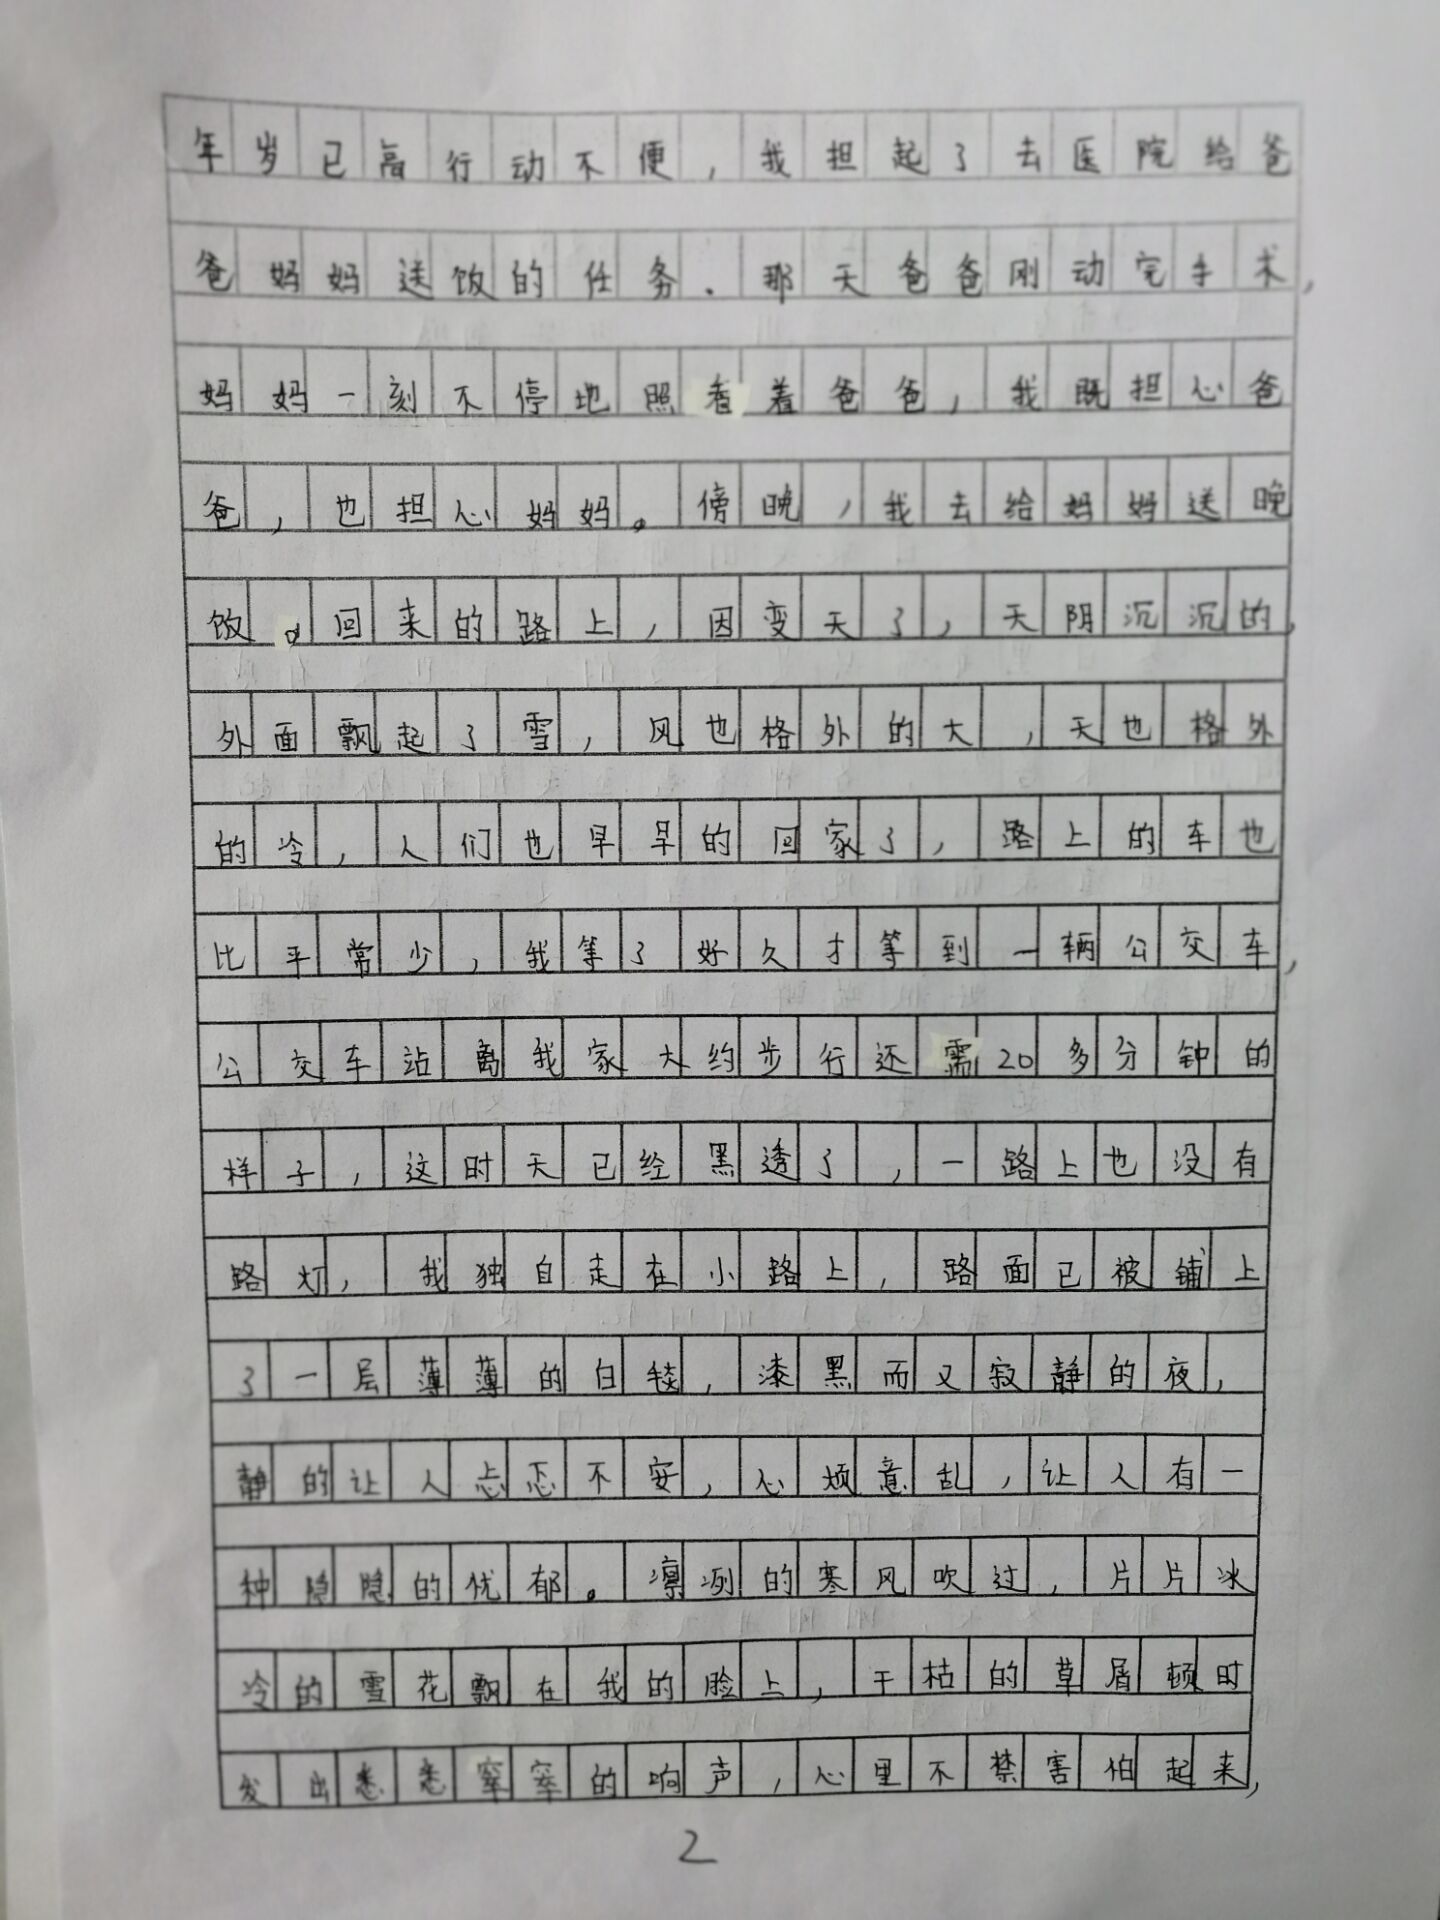 年岁已高行动不便，我担起了去医院给爸
爸妈妈送饭的任务．那天爸爸刚动完手术，
妈妈一刻不停地照看着爸爸，我既担心爸
爸，也担心妈妈。傍晚，我去给妈妈送晚
饭。回来的路上，因变天了，天阴沉沉的，
外面飘起了雪，风也格外的大，天也格外
的冷，人们也早早的回家了，路上的车也
比平常少，我等了好久才等到一辆公交车，
公交车站离我家大约步行还需20多分钟的
样子，这时天已经黑透了，一路上也没有
路灯，我独自走在小路上，路面已被铺上
了一层薄薄的白毯，漆黑而又寂静的夜，
静的让人忐忑不安，心烦意乱，让人有一
种隐隐的忧郁。凛冽的寒风吹过，片片冰
冷的雪花飘在我的脸上，干枯的草屑顿时
发出悉悉窣窣的响声，心里不禁害怕起来，
2